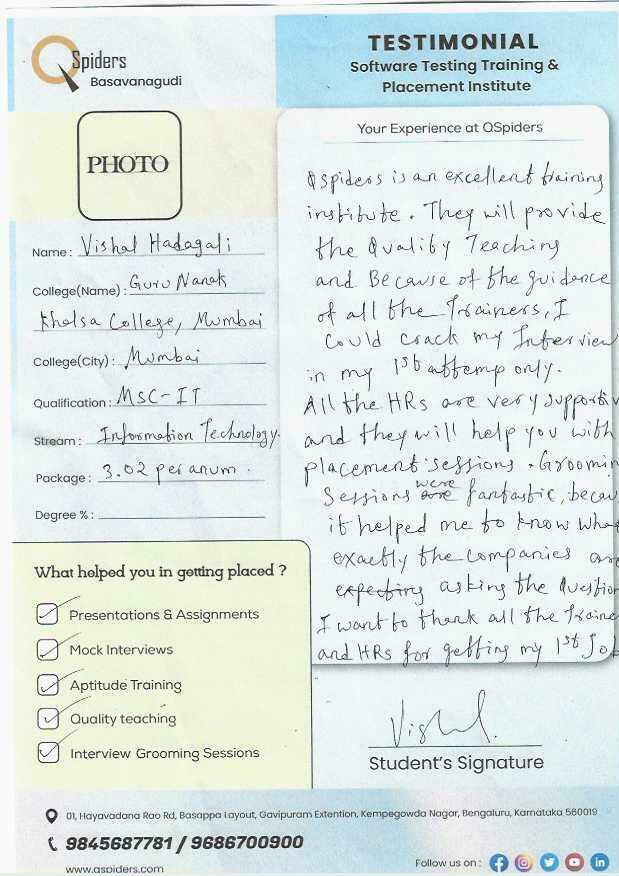 QSpiders
Basavanagudi
TESTIMONIAL
Software Testing Training &
Placement Institute
PHOTO
Name : Vishal Hadagali
College(Name) : Guru Nanak
Khalsa College, Mumbai
College(City) : Mumbai
Qualification : MSC-IT
Stream : Information Technology.
Package : 3.02 per anum.
Degree % :
What helped you in getting placed ?
Presentations & Assignments
Mock Interviews
Aptitude Training
Quality teaching
Interview Grooming Sessions
Your Experience at QSpiders
Qspiders is an excellent training
institute. They will provide
the Quality Teaching
and Because of the guidance
of all the Trainers, I
Could crack my Interview
in my 1st attemp only.
All the HRs are very supportiv
and they will help you with
placement sessions. Groomin
Sessions were fantastic, becau
it helped me to know what
exactly the companies are
expecting asking the Question
I want to thank all the Traine
and HRs for getting my 1st Job
Vishal.
Student's Signature
01, Hayavadana Rao Rd, Basappa Layout, Gavipuram Extention, Kempegowda Nagar, Bengaluru, Karnataka 560019
9845687781 / 9686700900
www.qspiders.com
Follow us on :